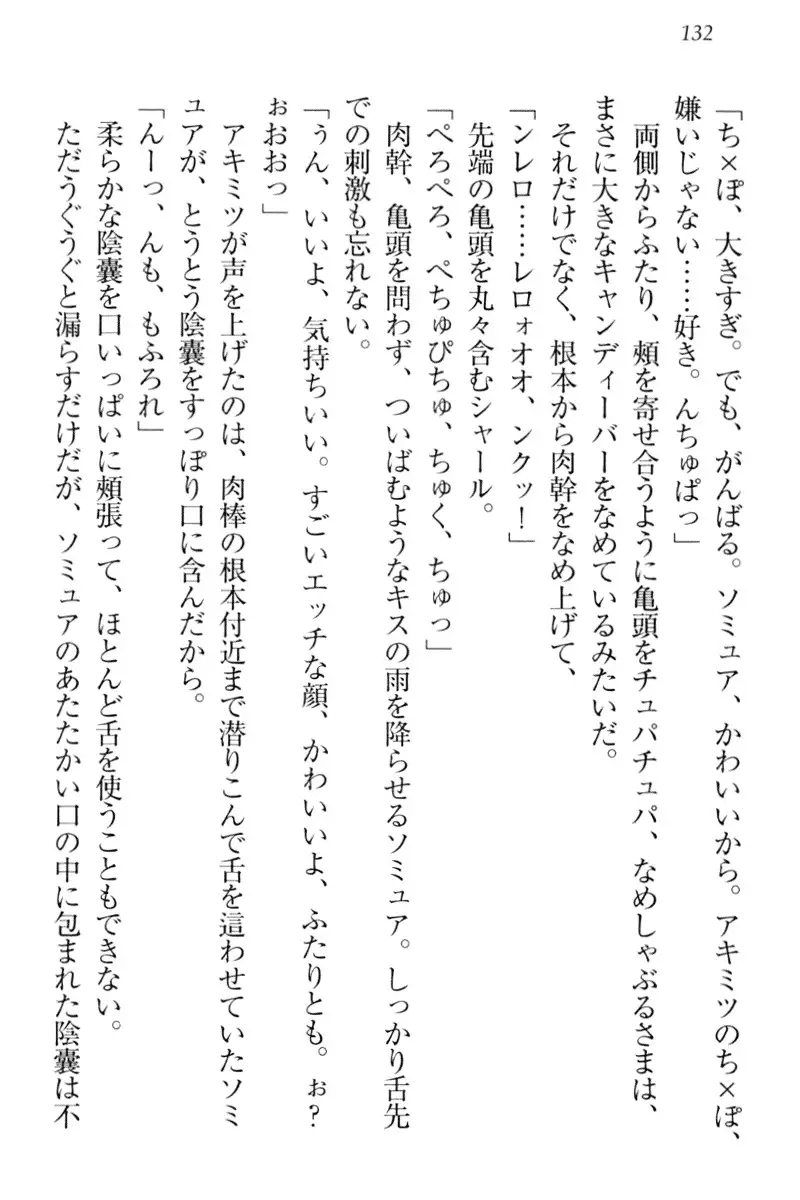 132
「ち×ぽ、大きすぎ。でも、がんばる。ソミュア、かわいいから。アキミツのち×ぽ、
嫌いじゃない……好き。んちゅぱっ」
両側からふたり、頰を寄せ合うように亀頭をチュパチュパ、なめしゃぶるさまは、
まさに大きなキャンディーバーをなめているみたいだ。
それだけでなく、根本から肉幹をなめ上げて、
「ンレロ……レロォオオ、ンクッ！」
先端の亀頭を丸々含むシャール。
「ぺろぺろ、ぺちゅぴちゅ、ちゅく、ちゅっ」
肉幹、亀頭を問わず、ついばむようなキスの雨を降らせるソミュア。しっかり舌先
での刺激も忘れない。
「ぅん、いいよ、気持ちいい。すごいエッチな顔、かわいいよ、ふたりとも。ぉ？
ぉおおっ」
アキミツが声を上げたのは、肉棒の根本付近まで潜りこんで舌を這わせていたソミ
ュアが、とうとう陰嚢をすっぽり口に含んだから。
「んーっ、んも、もふろれ」
柔らかな陰嚢を口いっぱいに頰張って、ほとんど舌を使うこともできない。
ただうぐうぐと漏らすだけだが、ソミュアのあたたかい口の中に包まれた陰嚢は不